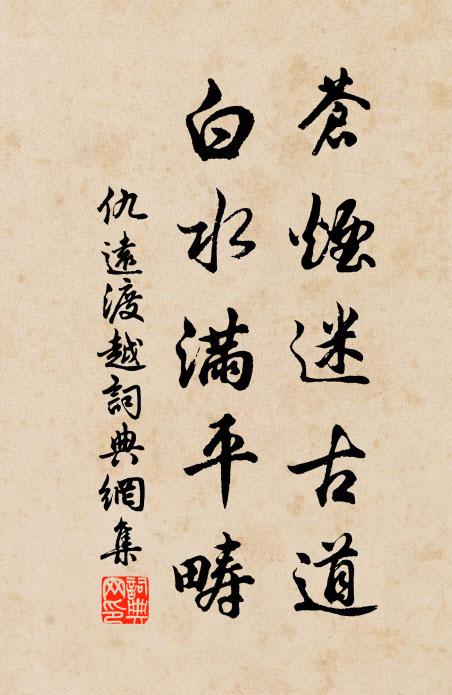 蒼煙迷古道
白水滿平疇
仇遠渡越詞典網集